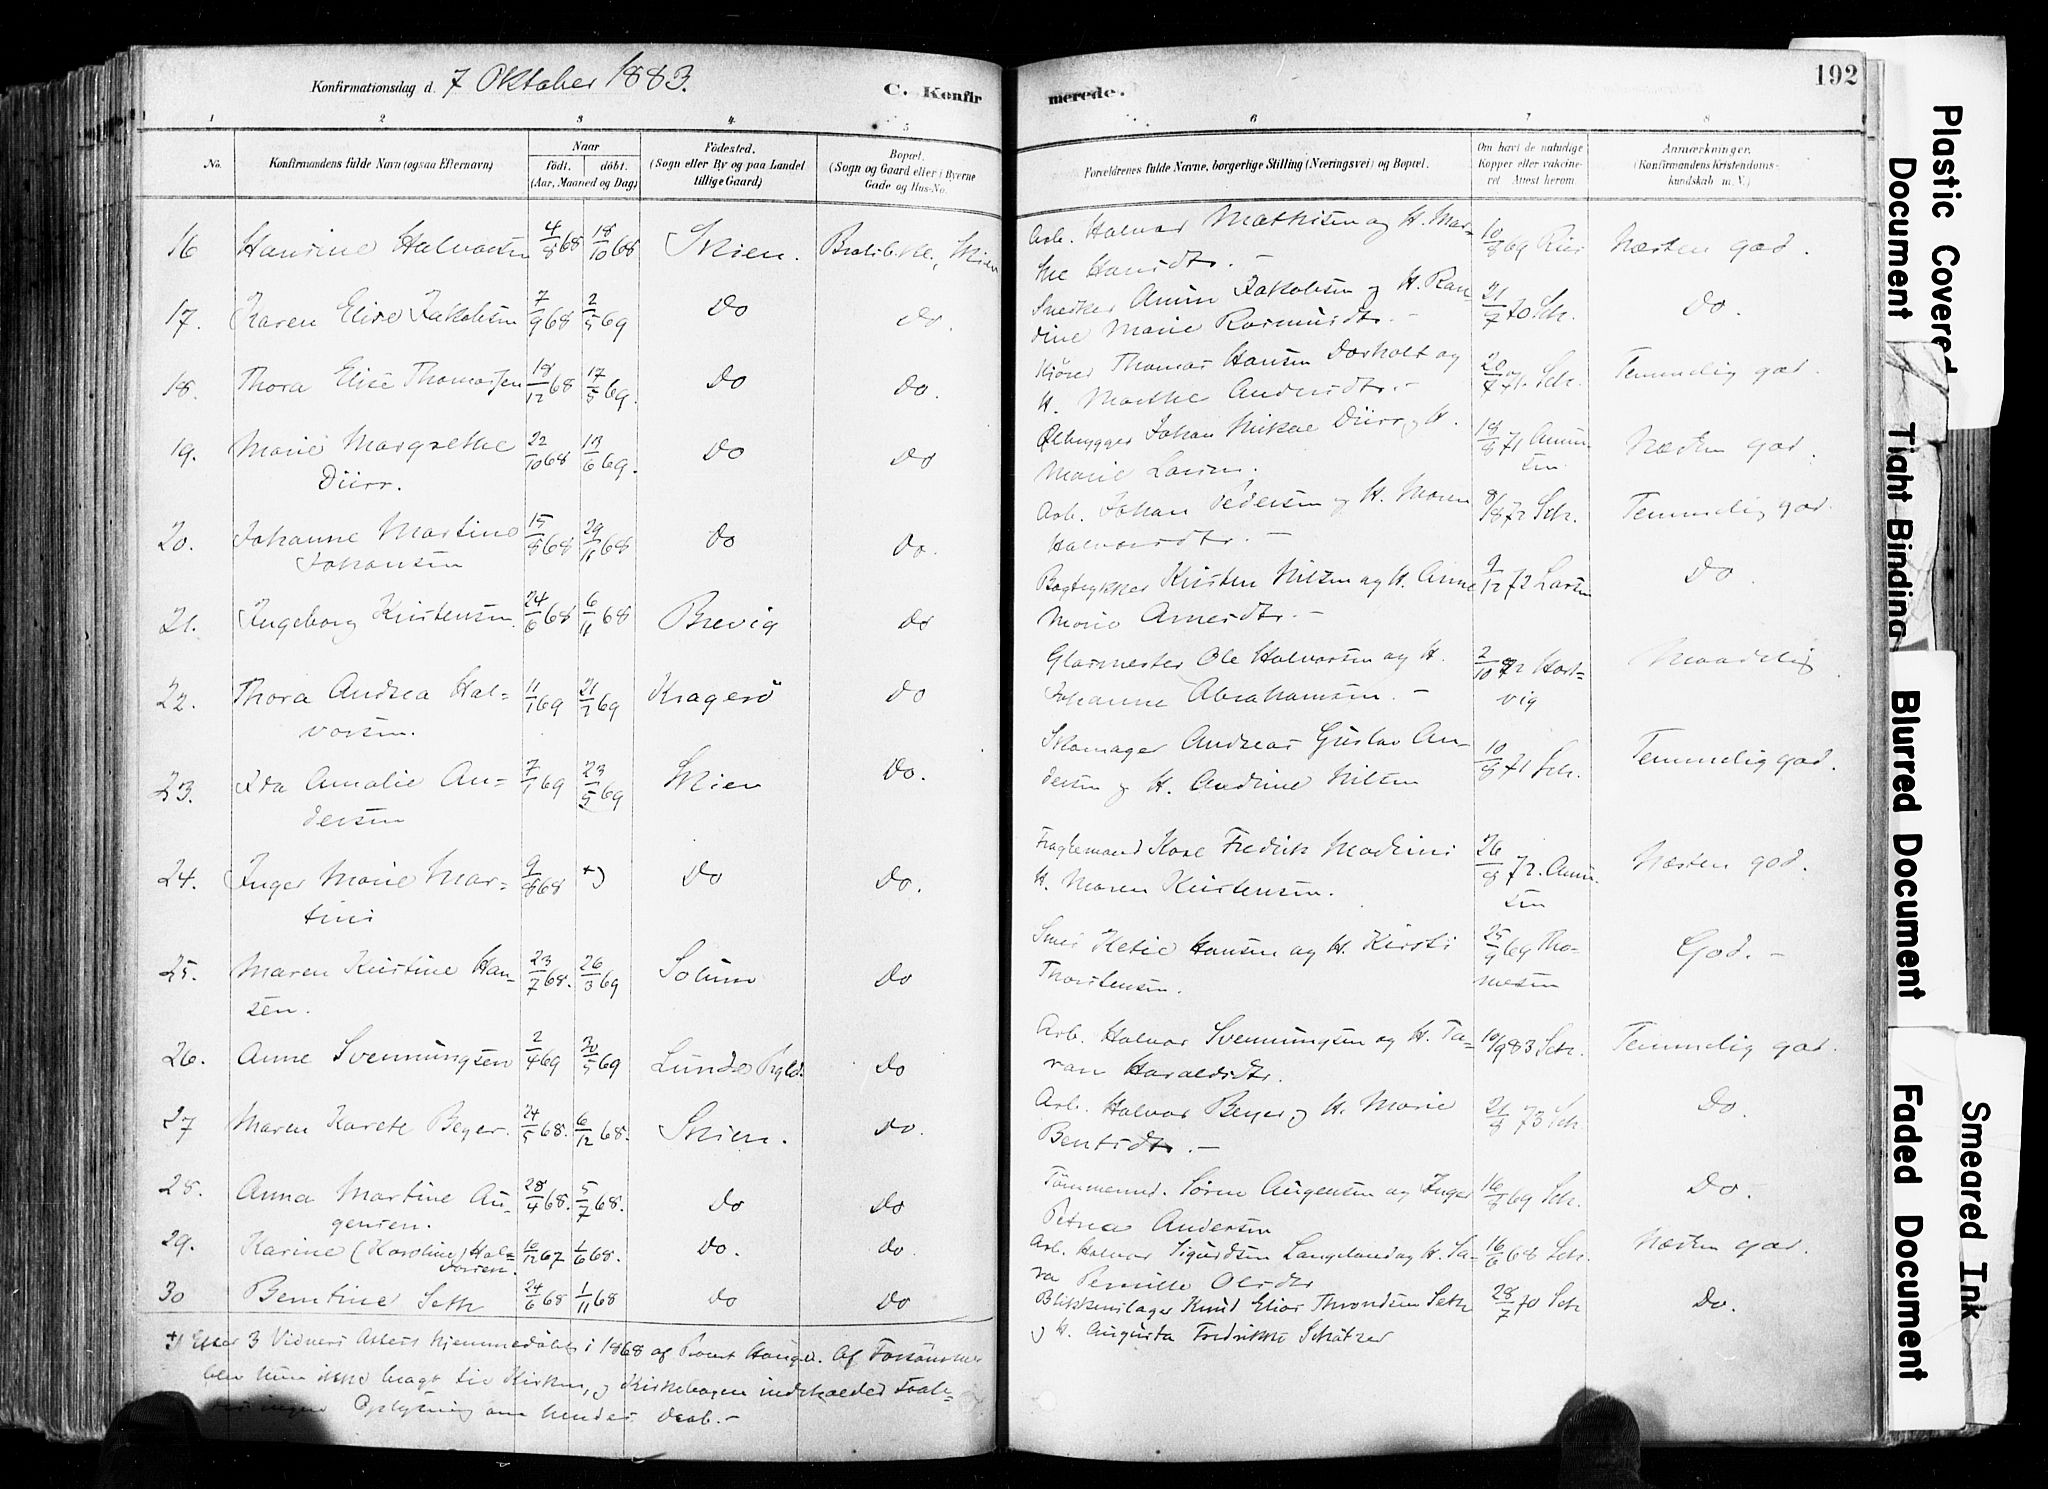 Konfirmationsdag d. 7 Oktober 1883.
C. Konfirmerede.
192
1 2 3 4 5 6 7 8
No.
Konfirmandens fulde Navn (ogsaa Efternavn)
Naar
födt. döbt.
(Aar, Maaned og Dag)
Födested.
(Sogn eller By og paa Landet
tillige Gaard)
Bopæl.
(Sogn og Gaard eller i Byerne
Gade og Hus-No.
Forældrenes fulde Navne, borgerlige Stilling (Næringsvei) og Bopæl.
Om havt de naturlige
Kopper eller vakcine-
ret Attest herom.
Anmærkninger.
(Konfirmandens Kristendoms-
kundskab m. V.)
16 Hansine Halvorsen 4/8 68 18/10 68 Skien. Bratsb.kl., Skien Arb. Halvor Mathisen og H. Mar-
the Hansdtr. - 10/8 69 Riis Næsten god.
17. Karen Elise Jakobsen 7/9 68 2/5 69 Do Do. Snedker Amun Jakobsen og H. Ran
dine Marie Rasmusdtr. - 21/7 70 Sch. Do.
18. Thora Elise Thomassen 18/12 68 17/5 69. Do Do. Kjører Thomas Hansen Dorholt og
H. Marthe Andersdtr. - 20/7 71. Sch. Temmelig god.
19. Marie Margrethe
Dürr. 22/10 68 13/6 69. Do Do Ølbrygger Johan Nikol Dürr og H.
Marie Larsen. 18/8 71 Amun-
sen Næsten god.
20. Johanne Martine
Johansen 15/8 68 29/11 68 Do Do. Arb. Johan Pedersen og H. Maren
Halvorsdtr. - 8/8 72 Sch. Temmelig god.
21. Ingeborg Kristensen. 24/6 68 6/11 68 Brevig Do Bogtrykker Kristen Nilsen og H. Anne
Marie Arnesdtr. - 9/12 72 Larsen Do.
22. Thora Andrea Hal-
vorsen. 11/1 69 21/2 69 Kragerö Do Glarmester Ole Halvorsen og H.
Johanne Abrahamsen. - 2/10 72 Hart-
vig Maadelig
23. Ida Amalie An-
dersen 7/1 69 23/5 69 Skien Do. Skomager Andreas Gustav An-
dersen og H. Andrine Nilsen 10/8 71 Sch. Temmelig god.
24. Inger Marie Mar-
tini 9/8 68 +) Do Do. Fragtemand Karl Fredrik Martini
H. Maren Kristensen. 26/8 72. Amun-
sen Næsten god.
25. Maren Kristine Han-
sen. 23/7 68. 26/3 69 Solum Do Smed Ketil Hansen og H. Kirsti
Thorstensen. 25/9 69 Tho-
mesen God. -
26. Anne Svennungsen 2/4 69 30/5 69 Lunde Pgld. Do Arb. Halvor Svennungsen og H. Ta-
ran Haraldsdtr. 10/9 83 Sch. Temmelig god.
27 Maren Karete Beyer. 24/5 68. 6/12 68. Skien. Do. Arb. Halvor Beyer og H. Marie
Bentsdtr. - 21/8 73 Sch. Do.
28. Anna Martine Au-
gensen. 28/4 68. 5/7 68. Do Do Tömmermd. Sören Augensen og Inger
Petrea Andersen 16/8 69 Sch. Do.
29. Karine (Karoline) Hal-
vorsen. 10/12 67 1/6 68. Do. Do. Arb. Halvor Sigurdsen Langeland og H. Sa-
ra Pernille Olsdtr 16/6 68 Sch. Næsten god.
30 Bentine Seth 24/6 68 1/11 68 Do Do Blikkenslager Knud Elias Throndsen Seth
og H. Augusta Fredrikke Schätzer 28/7 70 Sch Do.
+) Efter 3 Vidners Attest hjemmedöbt i 1868 af Provst Hauge. Af Forsömmelse
blev hun ikke bragt til Kirken, og Kirkebogen indeholder
ingen Oplysning om hendes Daab. -
Plastic Covered Document
Tight Binding
Blurred Document
Faded Document
Smeared Ink